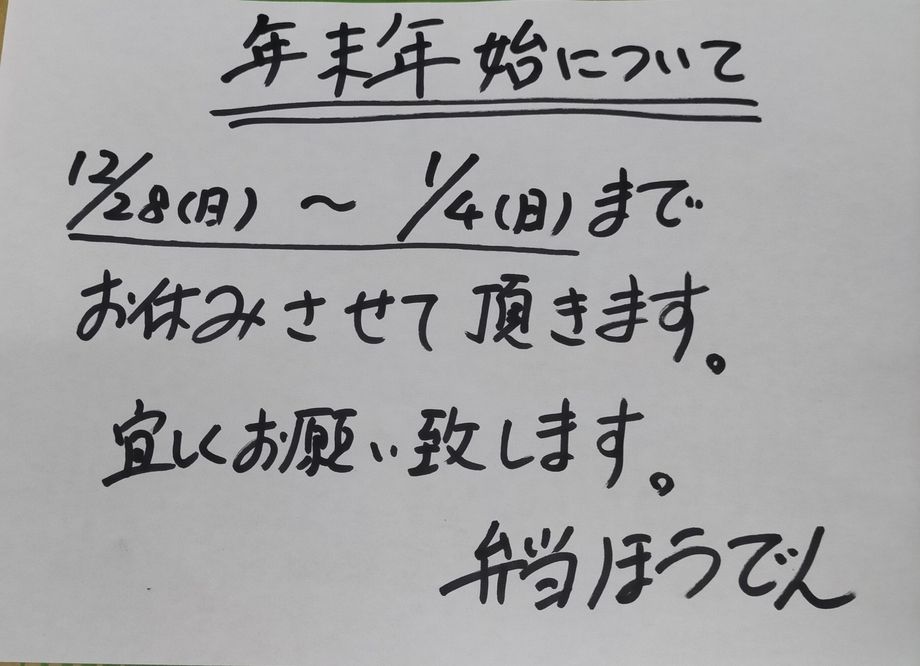 年末年始について
12/28(日)〜1/4(日)まで
お休みさせて頂きます。
宜しくお願い致します。
弁当ほうでん